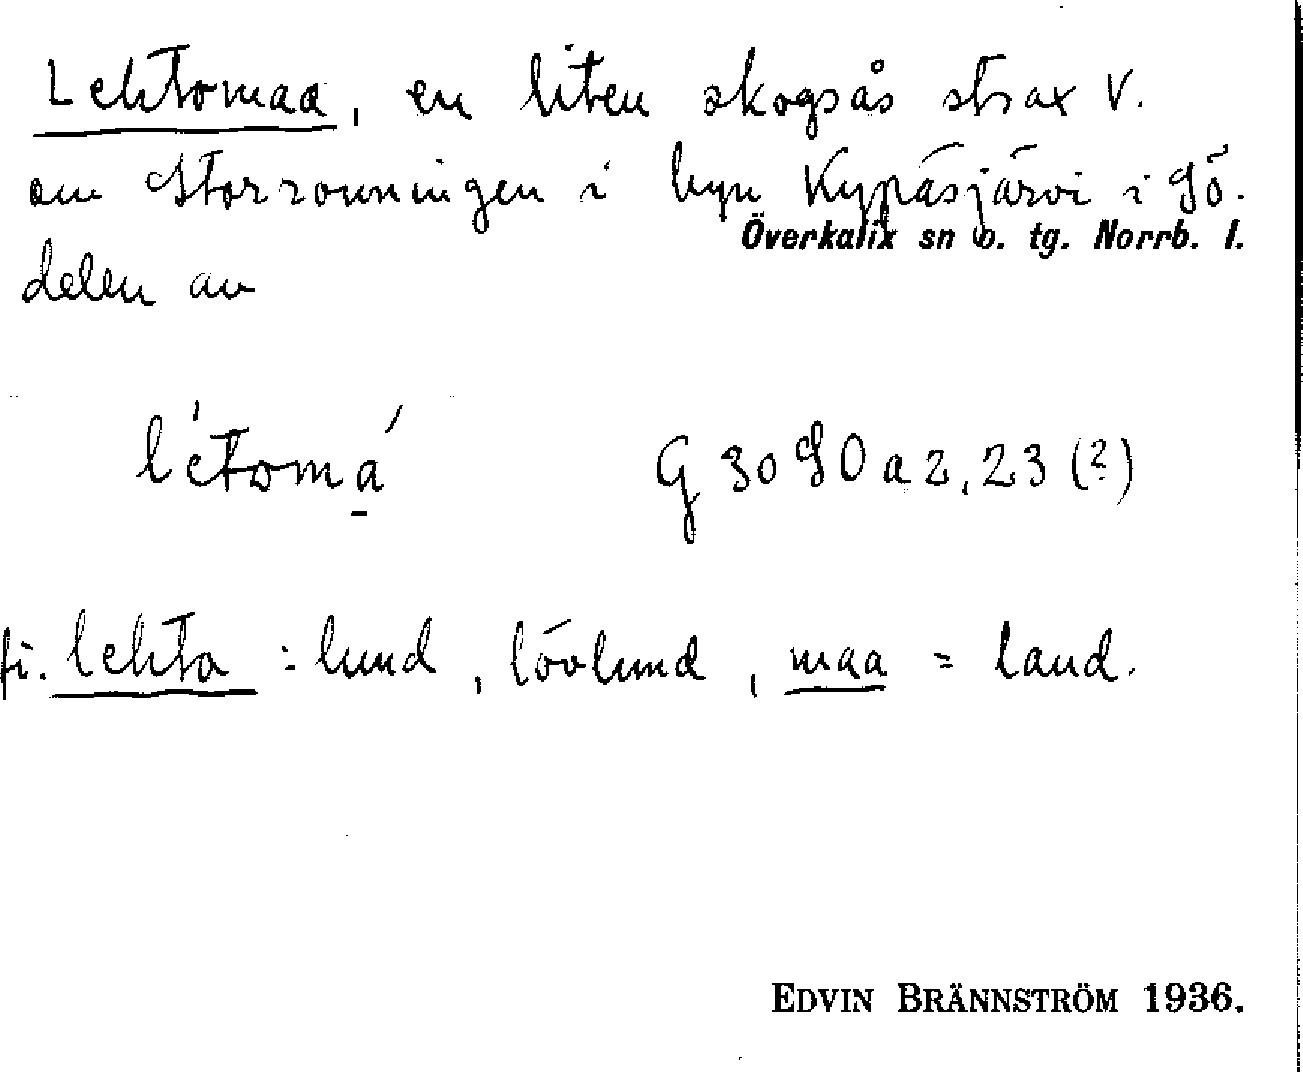 Lehtomaa, en liten skogsås strax V.
om Storronningen i byn Kypäsjärvi i sö.
delen av
Överkalix sn o. tg. Norrb. l.
létomá G 30 SO a 2, 23 (?)
fi. lehto = lund, lövlund, maa = land.
EDVIN BRÄNNSTRÖM 1936.